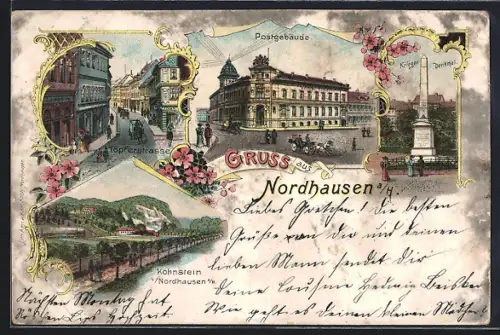 Postgebäude
Krieger Denkmal
Töpferstrasse
GRUSS aus
Nordhausen a/H.
Kohnstein
b/Nordhausen a/H.
Liebes Gretchen! Die besten
Grüße an Dir und deinen
lieben Mann sendet dir
deine Cousine Hedwig
Wie geht es deinen kleinen Mädchen?
Nächsten Montag hat
Hochzeit.